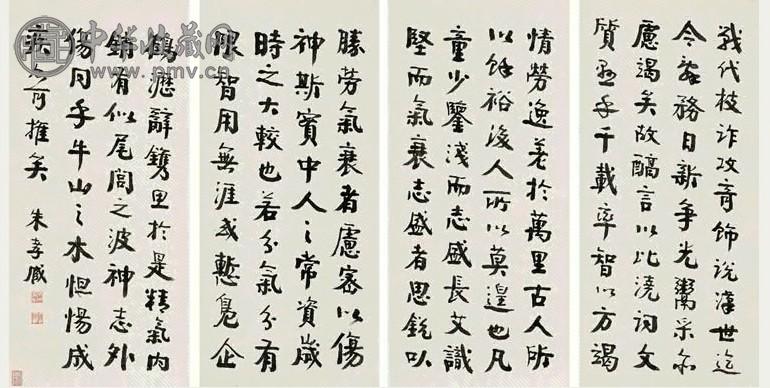 戰代枝詐攻奇飾說漢世迄
今辭務日新爭光鬻采亦
慮竭矣故醕言以比澆詞文
質懸乎千載率智以方竭
情勞逸差於萬里古人所
以餘裕後人所以莫遑也凡
童少鑒淺而志盛長艾識
堅而氣衰志盛者思銳以
勝勞氣衰者慮密以傷
神斯實中人之常資歲
時之大較也若夫氣分有
限智用無涯或慙鳧企
鶴瀝辭鐫思於是精氣內
銷有似尾閭之波神志外
傷同乎牛山之木怛惕成
疾亦可推矣 朱孝臧
中华收藏网
www.pmv.cn